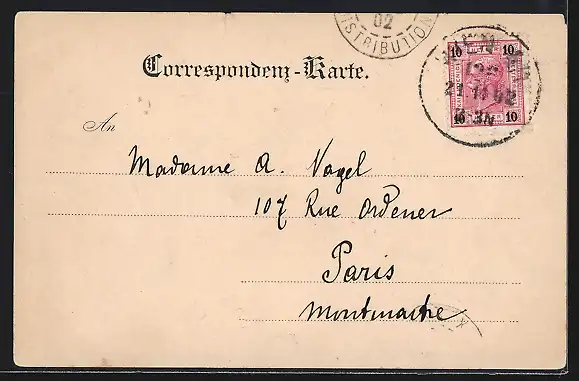 02
DISTRIBUTION
10 10
Correspondenz-Karte.
10 10
An
Madame A. Vogel
107 Rue Ordener
Paris
Montmartre